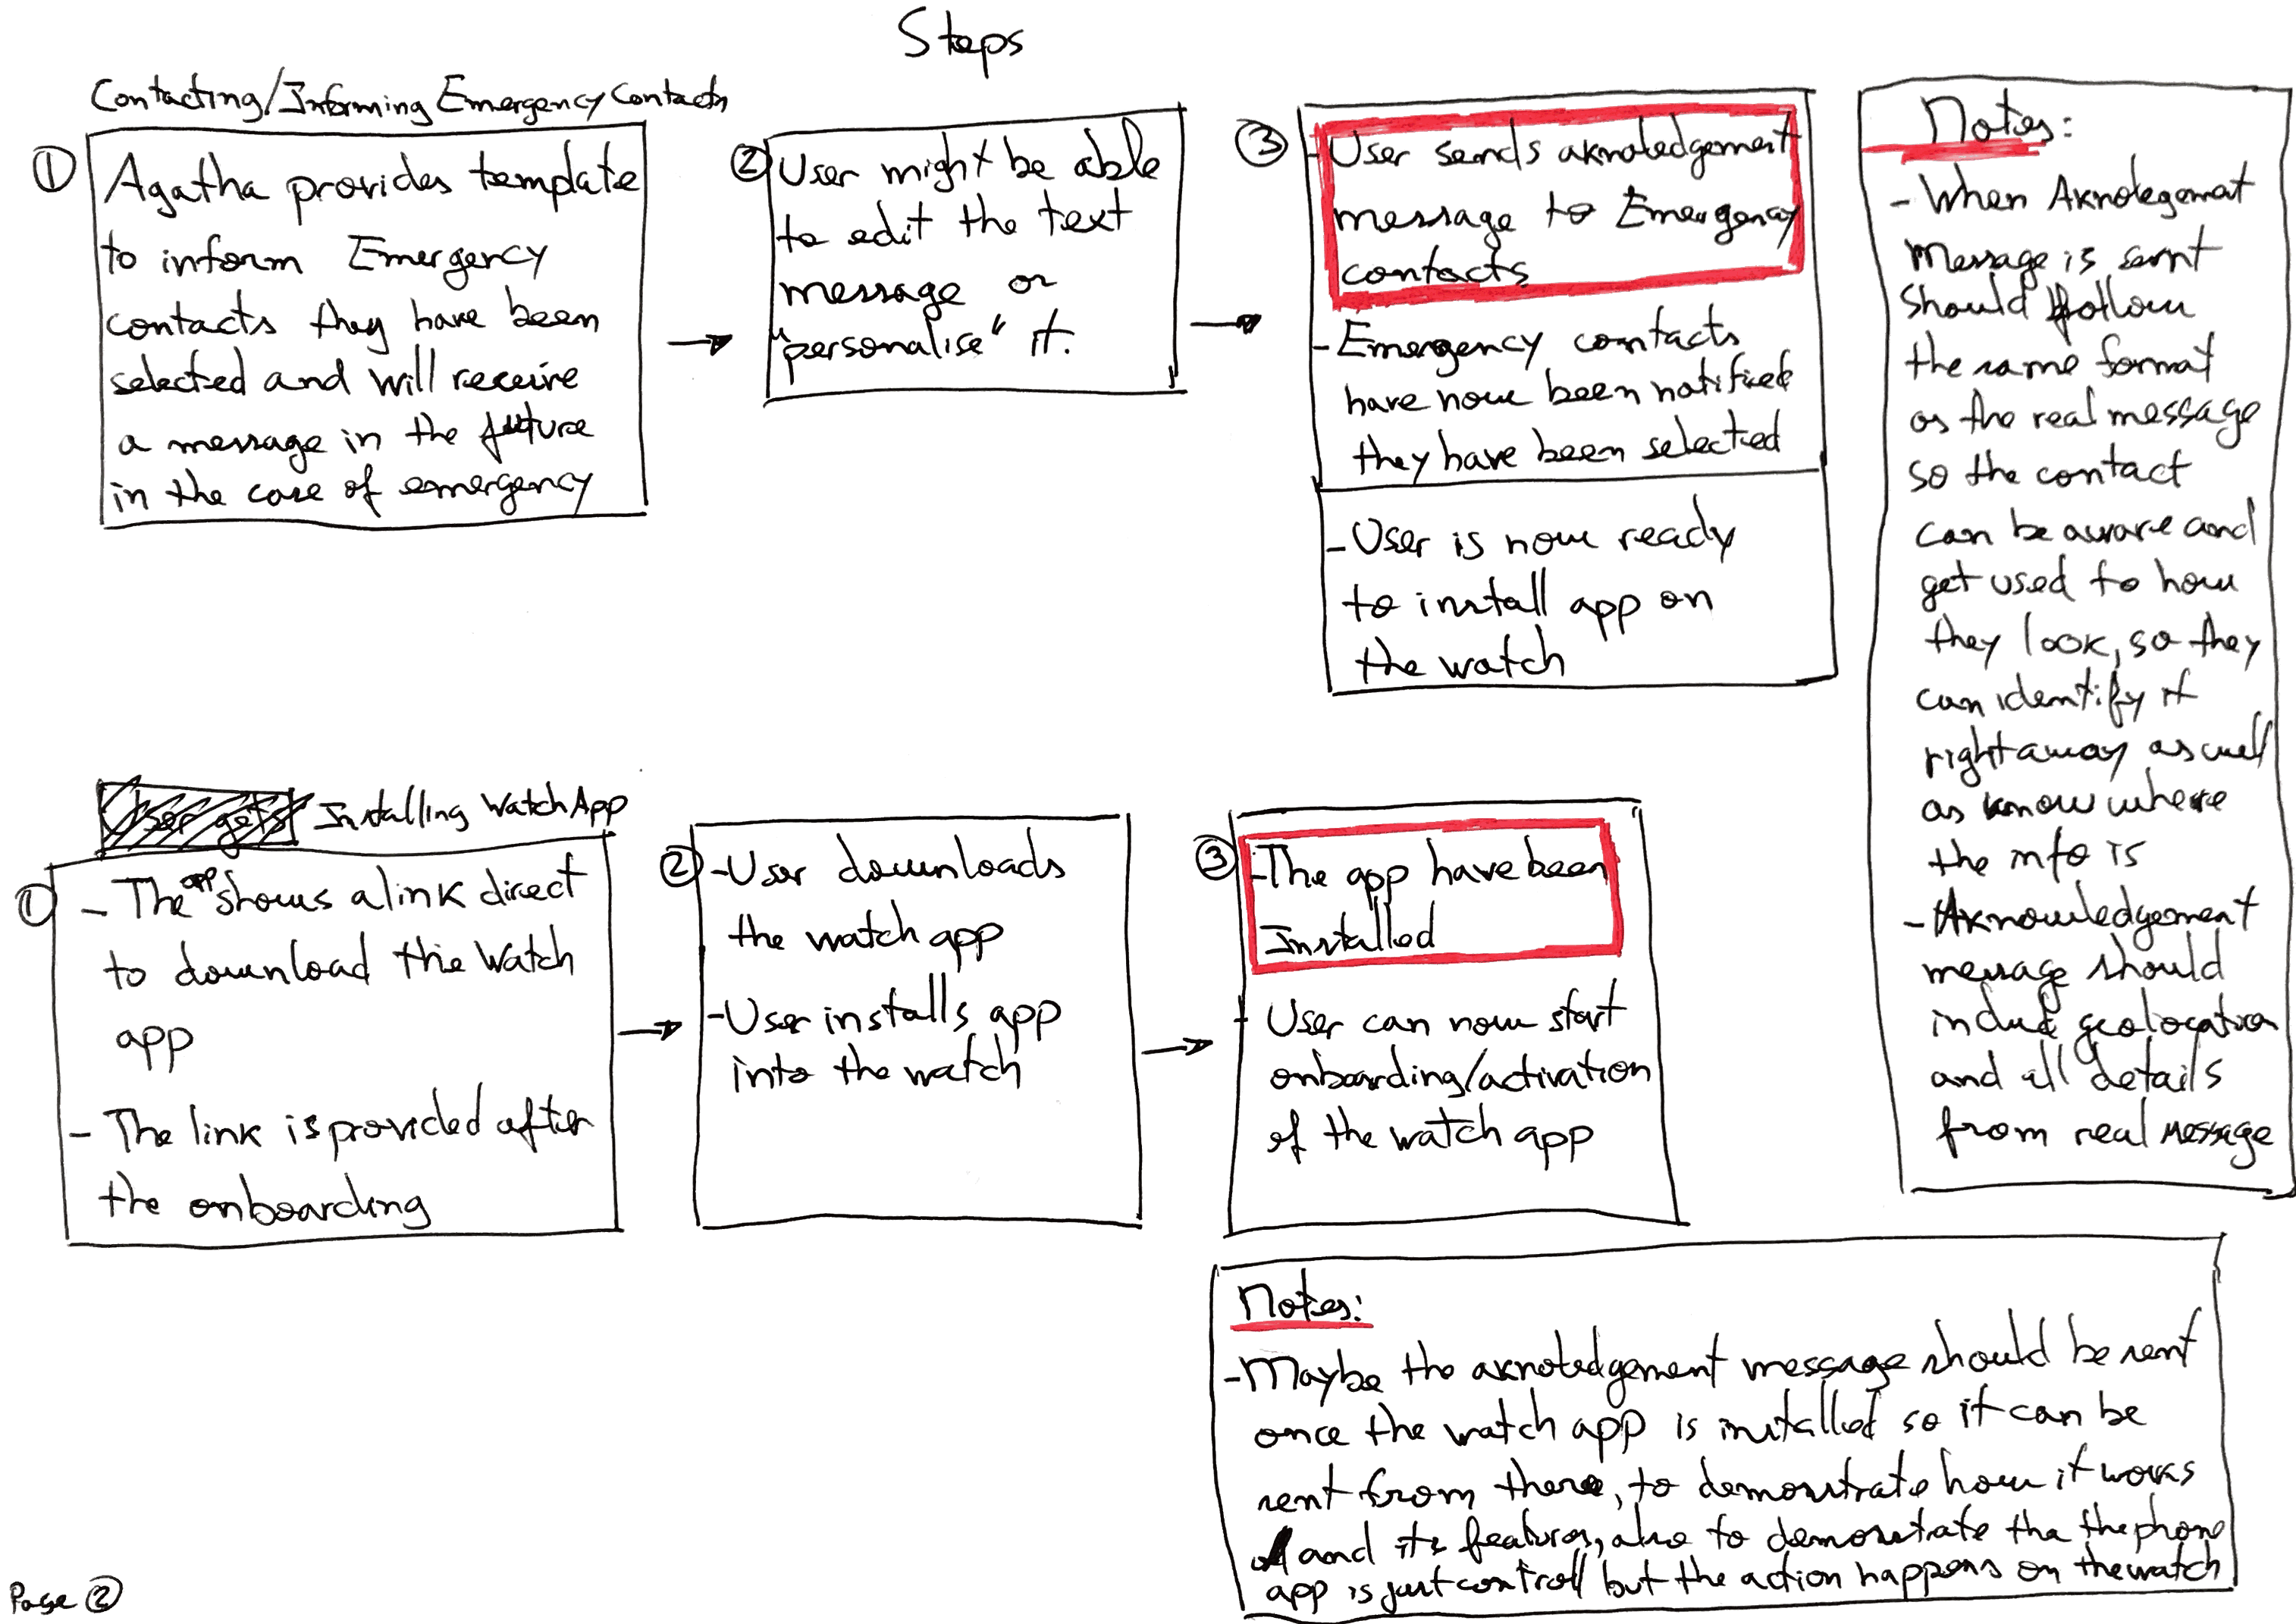 Steps
Contacting/Informing Emergency Contacts
①
Agatha provides template
to inform Emergency
contacts they have been
selected and will receive
a message in the future
in the case of emergency
②
User might be able
to edit the text
message or
"personalise" it.
③
- User sends aknoledgement
message to Emergency
contacts
- Emergency contacts
have now been notified
they have been selected
- User is now ready
to install app on
the watch
Notes:
- When Aknolegemat
message is sent
should follow
the same format
as the real message
so the contact
can be aware and
get used to how
they look, so they
can identify it
right away as well
as know where
the info is
- Aknowledgement
message should
include geolocation
and all details
from real message
User gets Installing Watch App
①
- The app shows a link direct
to download the Watch
app
- The link is provided after
the onboarding
②
- User downloads
the watch app
- User installs app
into the watch
③
- The app have been
Installed
- User can now start
onboarding/activation
of the watch app
Notes:
- Maybe the aknoledgement message should be sent
once the watch app is installed so it can be
sent from there, to demonstrate how it works
and its features, also to demostrate tha the phone
app is just controll but the action happens on the watch
Page ②